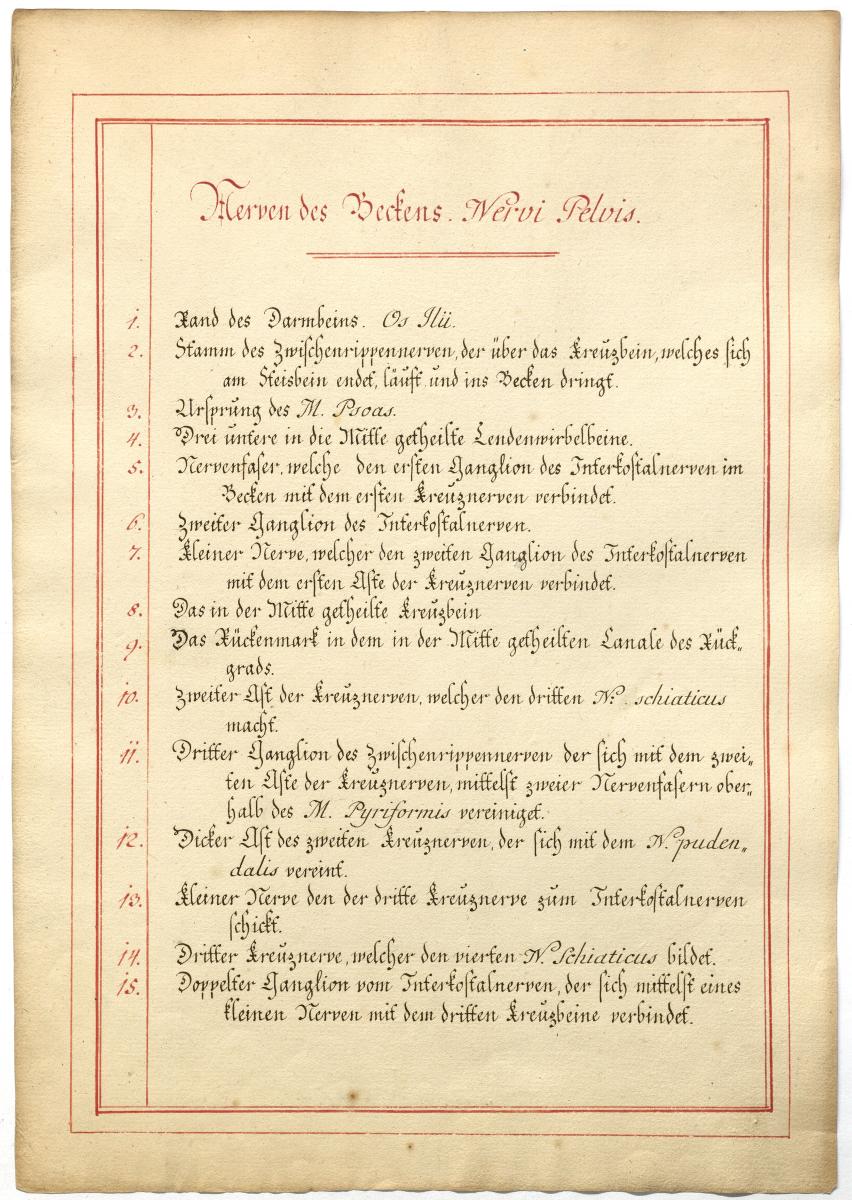 Nerven des Beckens. Nervi Pelvis.
1. Rand des Darmbeins. Os Ilii.
2. Stamm des Zwischenrippennerven, der über das Kreuzbein, welches sich
am Steisbein endet, läuft und ins Becken dringt.
3. Ursprung des M. Psoas.
4. Drei untere in die Mitte getheilte Lendenwirbelbeine.
5. Nervenfaser, welche den ersten Ganglion des Interkostalnerven im
Becken mit dem ersten Kreuznerven verbindet.
6. Zweiter Ganglion des Interkostalnerven.
7. Kleiner Nerve, welcher den zweiten Ganglion des Interkostalnerven
mit dem ersten Aste der Kreuznerven verbindet.
8. Das in der Mitte getheilte Kreuzbein
9. Das Rückenmark in dem in der Mitte getheilten Canale des Rück„
grads.
10. Zweiter Ast der Kreuznerven, welcher den dritten N. schiaticus
macht.
11. Dritter Ganglion des Zwischenrippennerven der sich mit dem zwei„
ten Aste der Kreuznerven, mittelst zweier Nervenfasern ober„
halb des M. Pyriformis vereiniget.
12. Dicker Ast des zweiten Kreuznerven, der sich mit dem N. puden„
dalis vereint.
13. Kleiner Nerve den der dritte Kreuznerve zum Interkostalnerven
schickt.
14. Dritter Kreuznerve, welcher den vierten N. Schiaticus bildet.
15. Doppelter Ganglion vom Interkostalnerven, der sich mittelst eines
kleinen Nerven mit dem dritten Kreuzbeine verbindet.